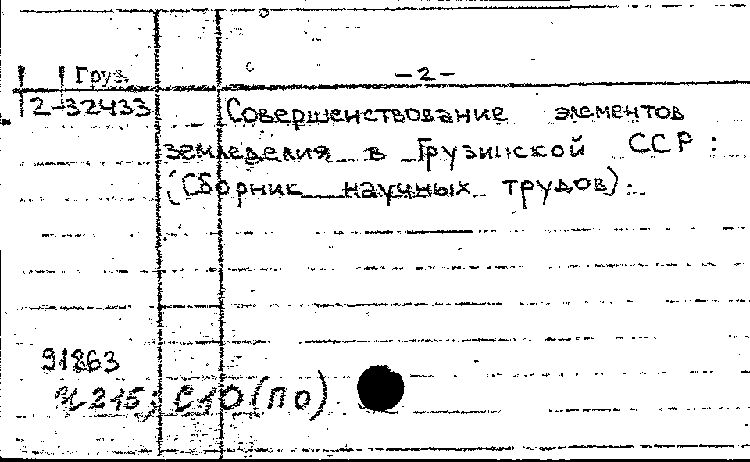 Груз. -2-
2-32433 Совершенствование элементов
земледелия в Грузинской ССР:
(Сборник научных трудов).
91863
И215; С10(ПО)